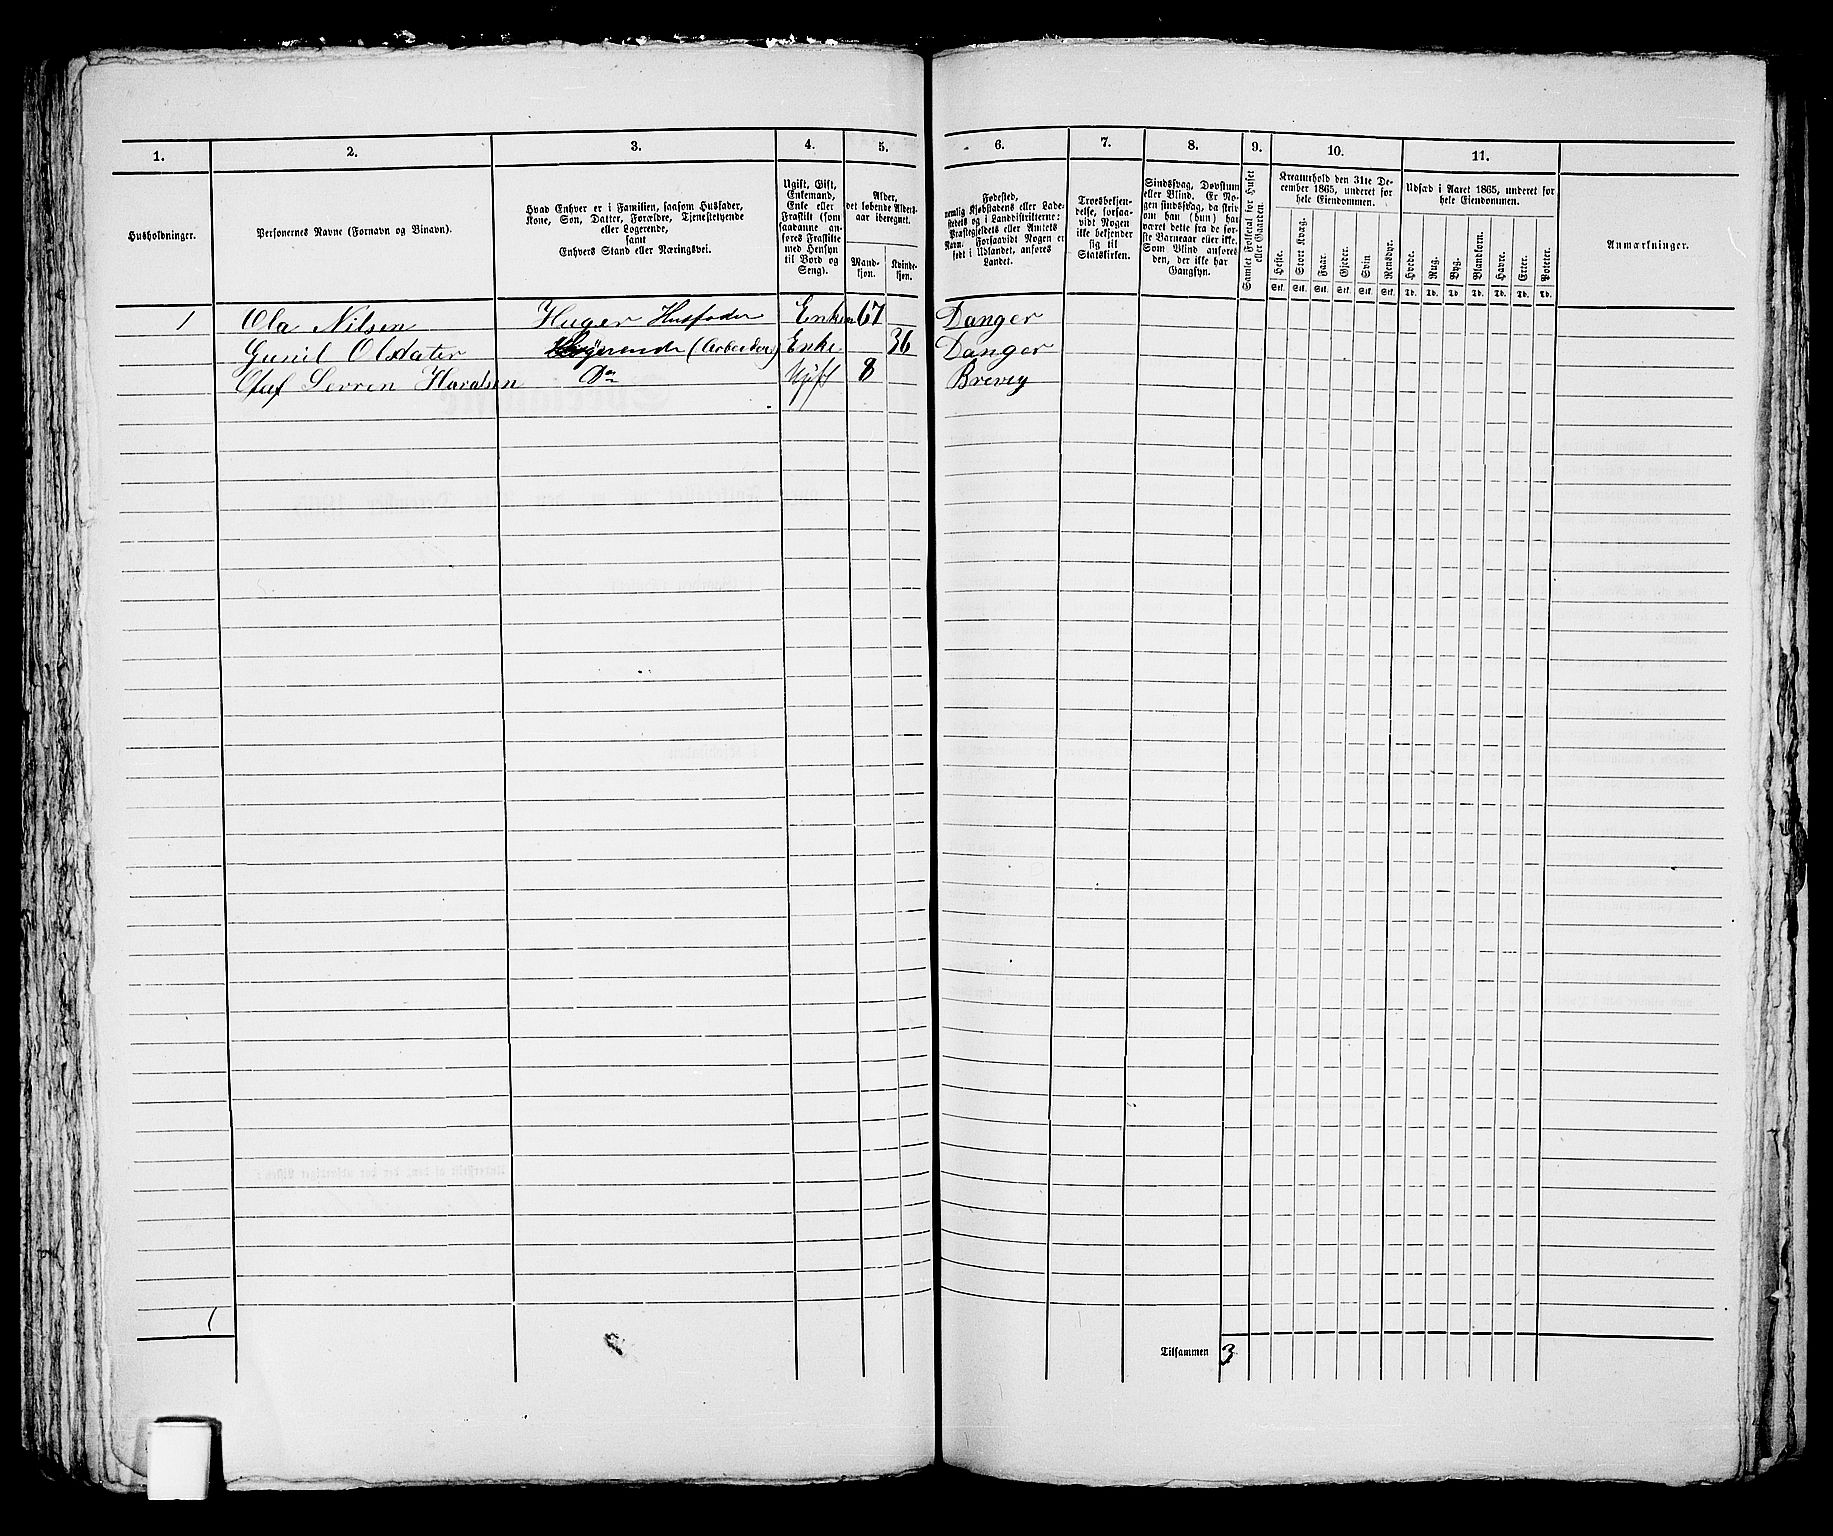 1. 2. 3. 4. 5. 6. 7. 8. 9. 10. 11.
Husholdninger.
Personernes Navne (Fornavn og Binavn).
Hvad Enhver er i Familien, saasom Husfader,
Kone, Søn, Datter, Forældre, Tjenestetyende
eller Logerende,
samt
Enhvers Stand eller Næringsvei.
Ugift, Gift,
Enkemand,
Enke eller
Fraskilt (som
saadanne an-
føres Fraskilte
med Hensyn
til Bord og
Seng).
Alder,
det løbende Alders-
aar iberegnet.
Mand-
kjøn.
Kvinde-
kjøn.
Fødested,
nemlig Kjøbstadens eller Lade-
stedets og i Landdistrikterne:
Præstegjeldets eller Amtets
Navn. Forsaavidt Nogen er
født i Udlandet, anføres
Landet.
Troesbekjen-
delse, forsaa-
vidt Nogen
ikke bekjender
sig til
Statskirken.
Sindssvag, Døvstum
eller Blind. Er No-
gen sindssvag, da skriv
om han (hun) har
været dette fra de før-
ste Barneaar eller ikke.
Som Blind anføres
den, der ikke har
Gangsyn.
Samlet Folketal for Huset
eller Gaarden.
Kreaturhold den 31te De-
cember 1865, underet for
hele Eiendommen.
Heste. Stort Kvæg. Faar. Gjeder. Svin Rensdyr.
Stk. Stk. Stk. Stk. Stk. Stk.
Udsæd i Aaret 1865, underet for
hele Eiendommen.
Hvede. Rug. Byg. Blandkorn. Havre. Erter. Poteter.
Td. Td. Td Td. Td. Td. Td.
Anmærkninger.
1 Ola Nilsen Huger Husfader 67 Danger
Gunil Olsdater (Arbeider) Enke 36 Danger
Olaf Serren Haralsen Do Ugift 8 Brevig
1
Tilsammen 3